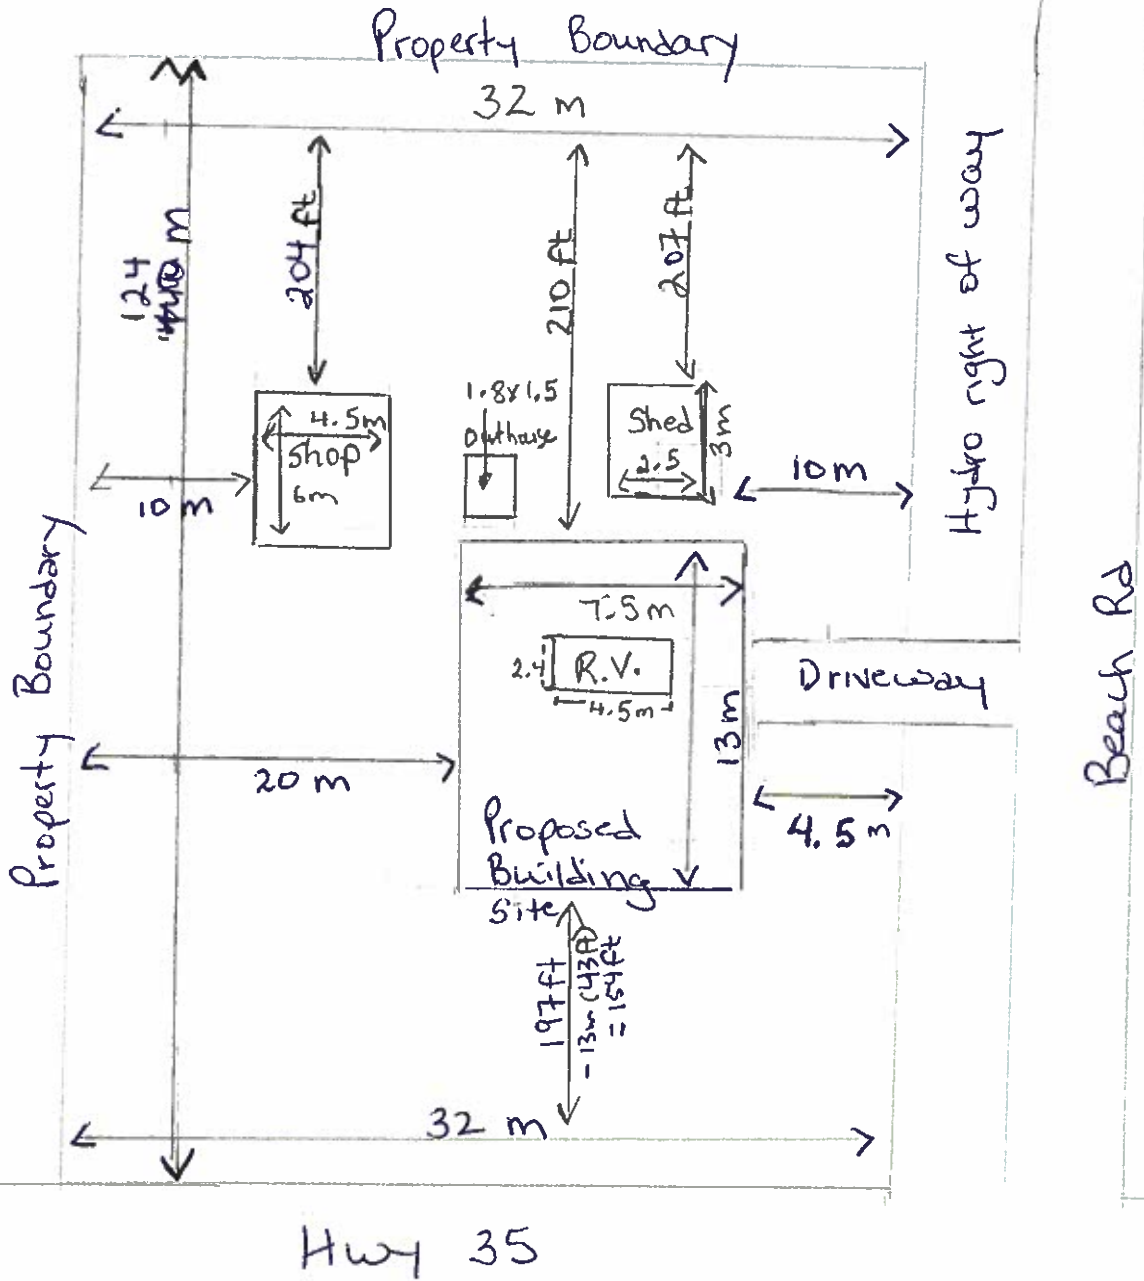 Property Boundary
32 m
124
m
204 ft
210 ft
207 ft
Hydro right of way
1.8x1.5
outhouse
4.5m
Shop
6m
Shed
2.5
3m
10 m
10m
Property Boundary
7.5 m
2.4
R.V.
4.5m
13m
Driveway
Beach Rd
20 m
4.5 m
Proposed
Building
Site
197 ft
- 13m (43ft)
= 154ft
32 m
Hwy 35